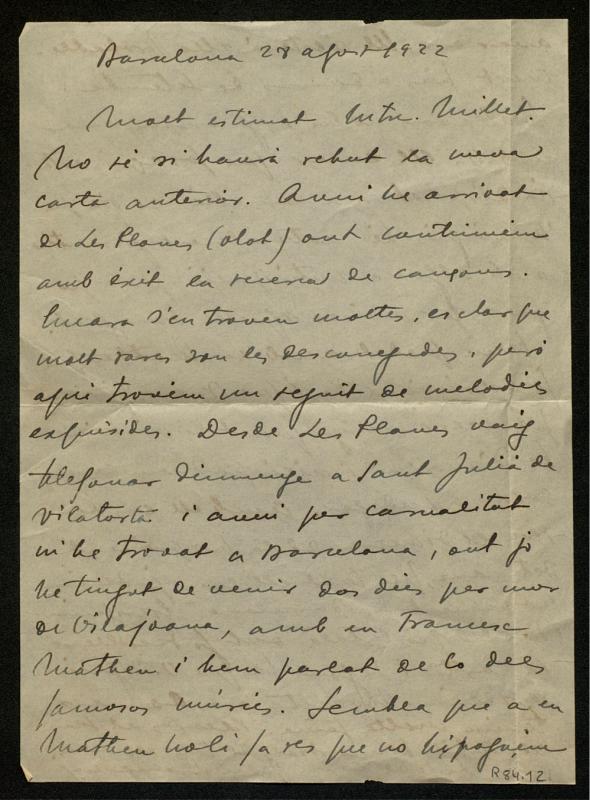 Barcelona 28 agost 1922
Molt estimat Mtre. Millet.
No sé si haurà rebut la meva
carta anterior. Avui he arrivat
de Les Planes (Olot) ont continuém
amb éxit la recerca de cançons.
Encara s'en troven moltes, es clar que
molt rares son les desconegudes, però
aqui trovém un seguit de melodies
exquisides. Desde Les Planes vaig
telefonar diumenge a Sant Julià de
Vilatorta i avui per casualitat
m'he trovat a Barcelona, ont jo
he tingut de venir dos dies per mor
de Vilajoana, amb en Francesc
Matheu i hem parlat de lo dels
famosos musics. Sembla que a en
Matheu no li fa res que no hi poguém
R84.12